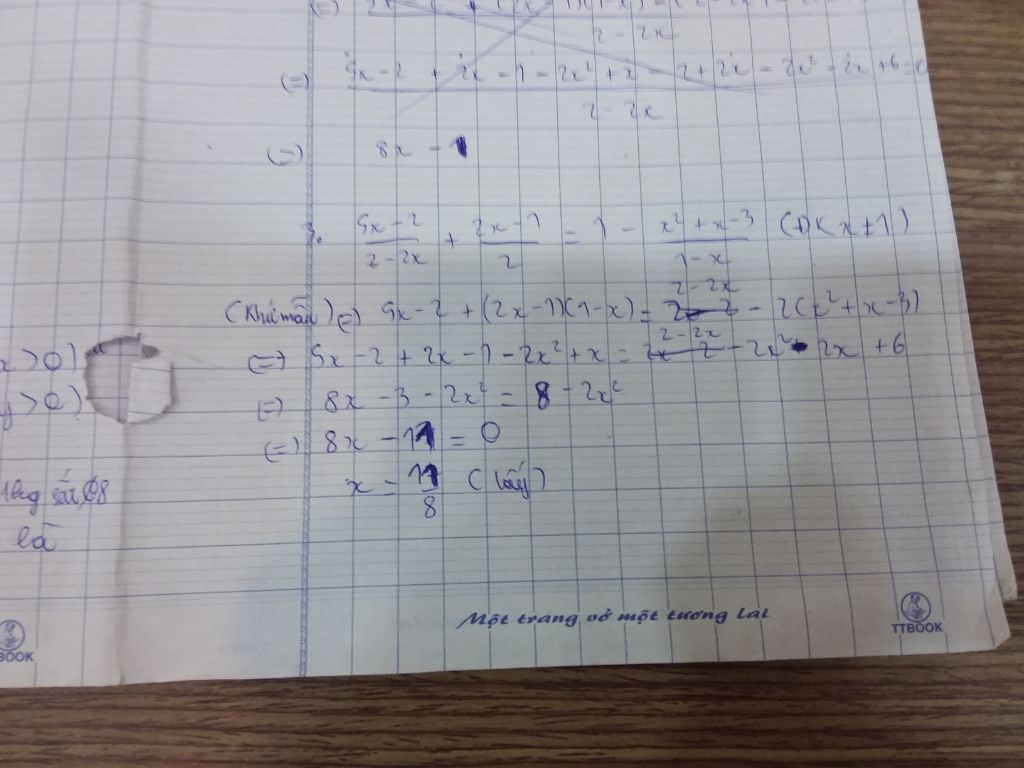 2 - 2x
(=) 5x - 2 + 2x - 1 - 2x² + x - 2 + 2x - 2x² - 2x + 6 = 0
2 - 2x
(=) 8x - 1
(5x - 2)/(2 - 2x) + (2x - 1)/2 = 1 - (x² + x - 3)/(1 - x) (x ≠ 1)
(Khử mẫu) (=) 5x - 2 + (2x - 1)(1 - x) = 2 - 2x - 2(x² + x - 3)
(=) 5x - 2 + 2x - 1 - 2x² + x = 2 - 2x - 2x² - 2x + 6
(=) 8x - 3 - 2x² = 8 - 2x²
(=) 8x - 11 = 0
x = 11/8 (lấy)
x > 0)
y > 0)
là
Một trang vở một tương lai
TTBOOK
BOOK